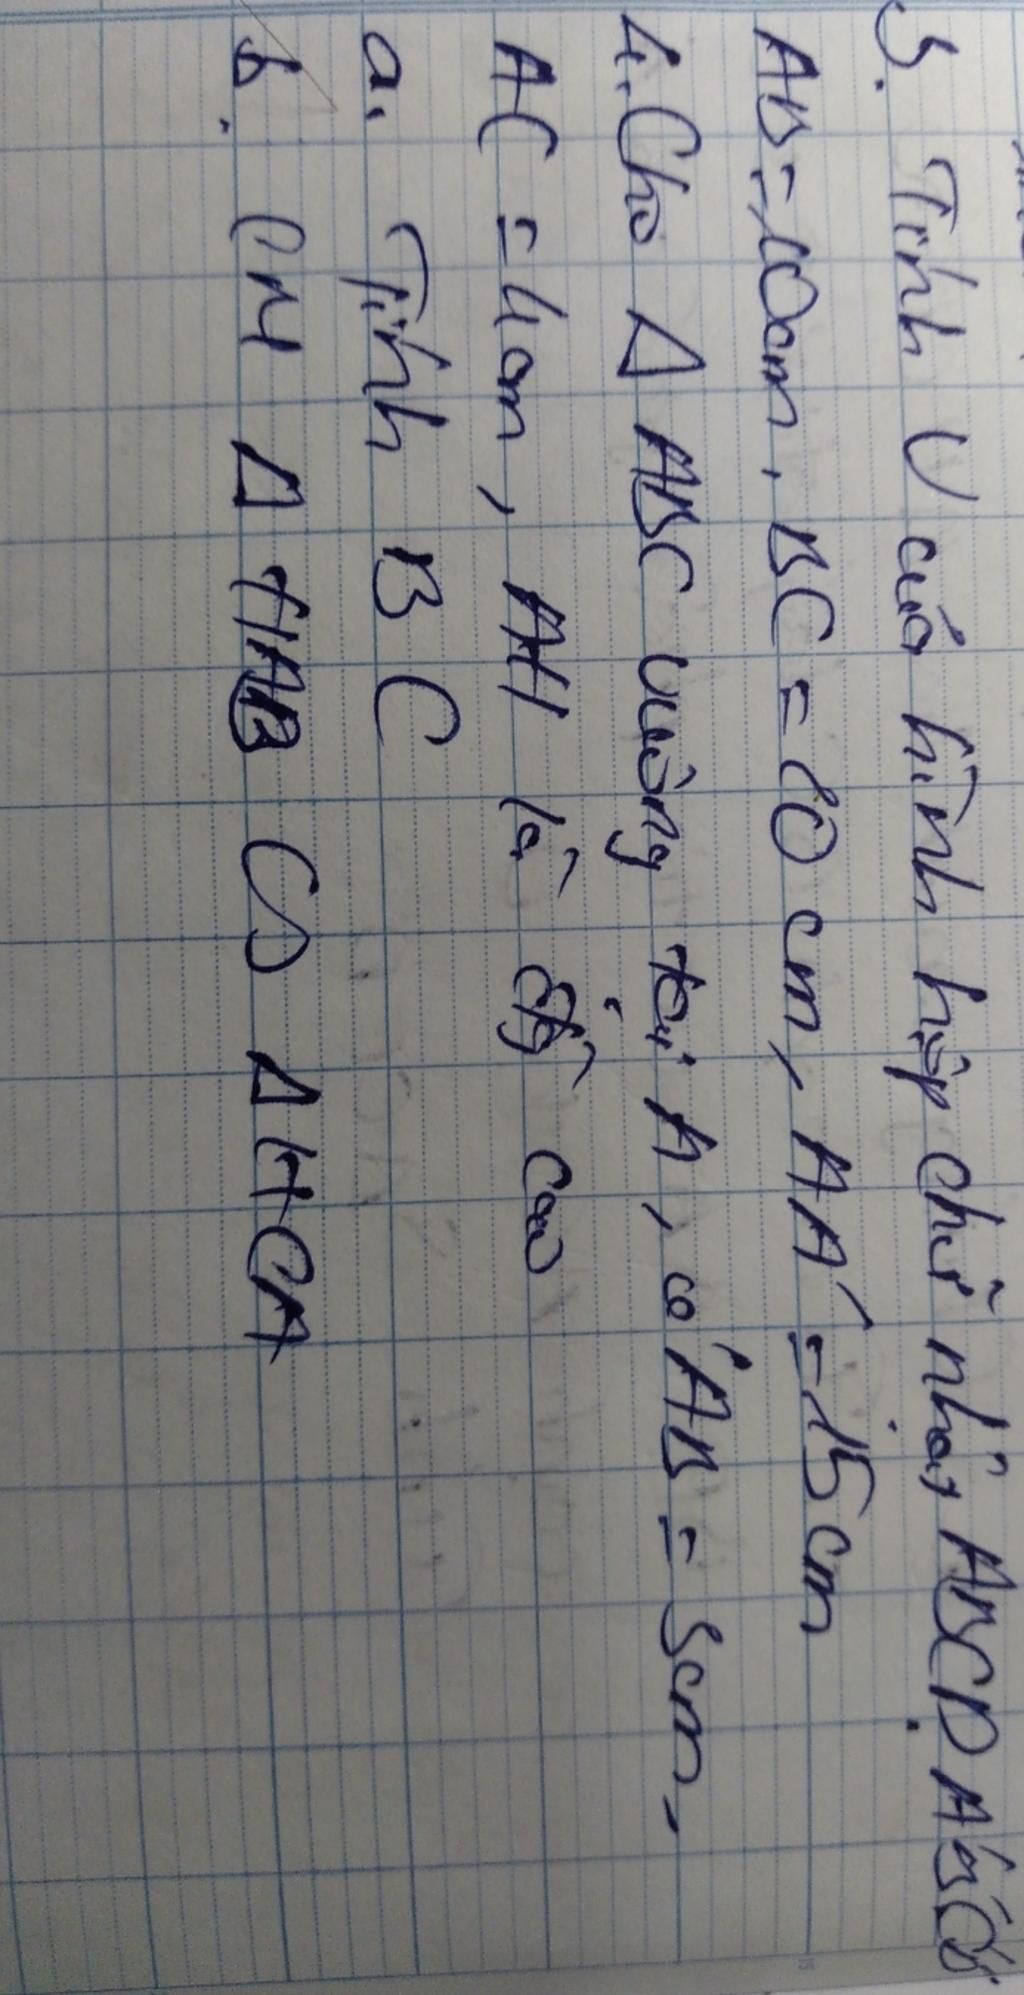 3. Tính V của hình hộp chữ nhật ABCD A'B'C'D'
AB = 10cm, BC = 20 cm, AA' = 15 cm
4. Cho Δ ABC vuông tại A, có AB = 3cm,
AC = 4cm, AH là đg cao
a. Tính BC
b. CM Δ HAB ∽ Δ HCA